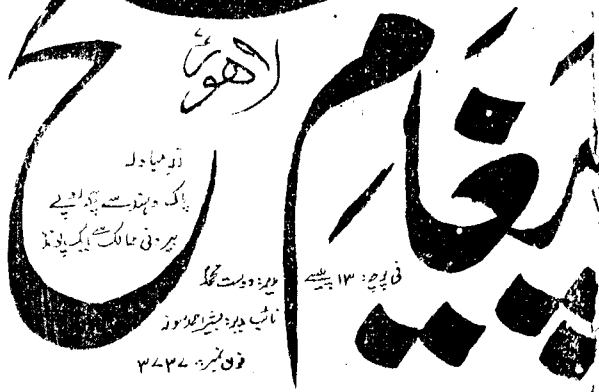 پیغامِ
لاہور
زرِ مبادلہ
پاک و ہند سے چھ روپے
بیرونی ممالک سے ایک پونڈ
فی پرچہ: ۱۳ پیسے
مدیر: دوست محمد
نائب مدیر: بشیر احمد سوز
فون نمبر: